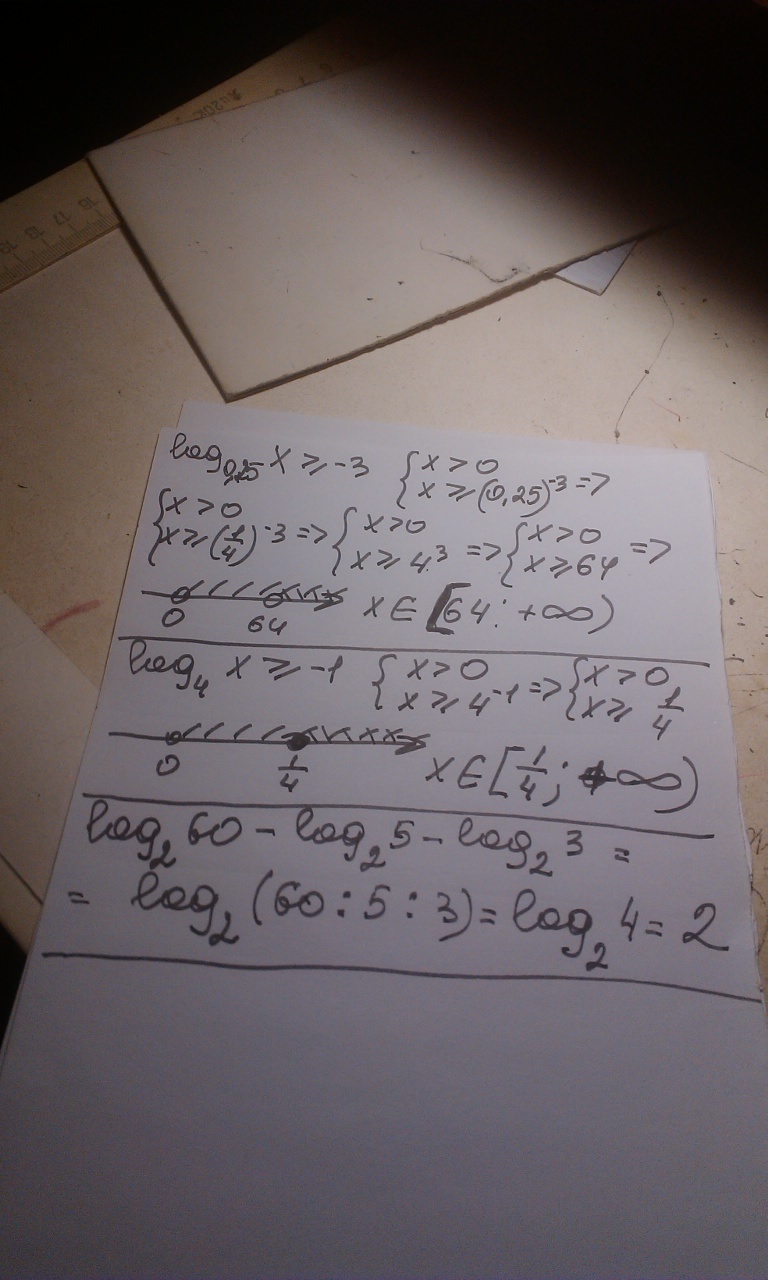 log₀,₂₅ x ⩾ -3 { x > 0 x ⩾ (0,25)⁻³ =>
{ x > 0 x ⩾ (1/4)⁻³ => { x > 0 x ⩾ 4³ => { x > 0 x ⩾ 64 =>
0 64 x ∈ [64; +∞)
log₄ x ⩾ -1 { x > 0 x ⩾ 4⁻¹ => { x > 0 x ⩾ 1/4
0 1/4 x ∈ [1/4; +∞)
log₂ 60 - log₂ 5 - log₂ 3 =
= log₂ (60 : 5 : 3) = log₂ 4 = 2